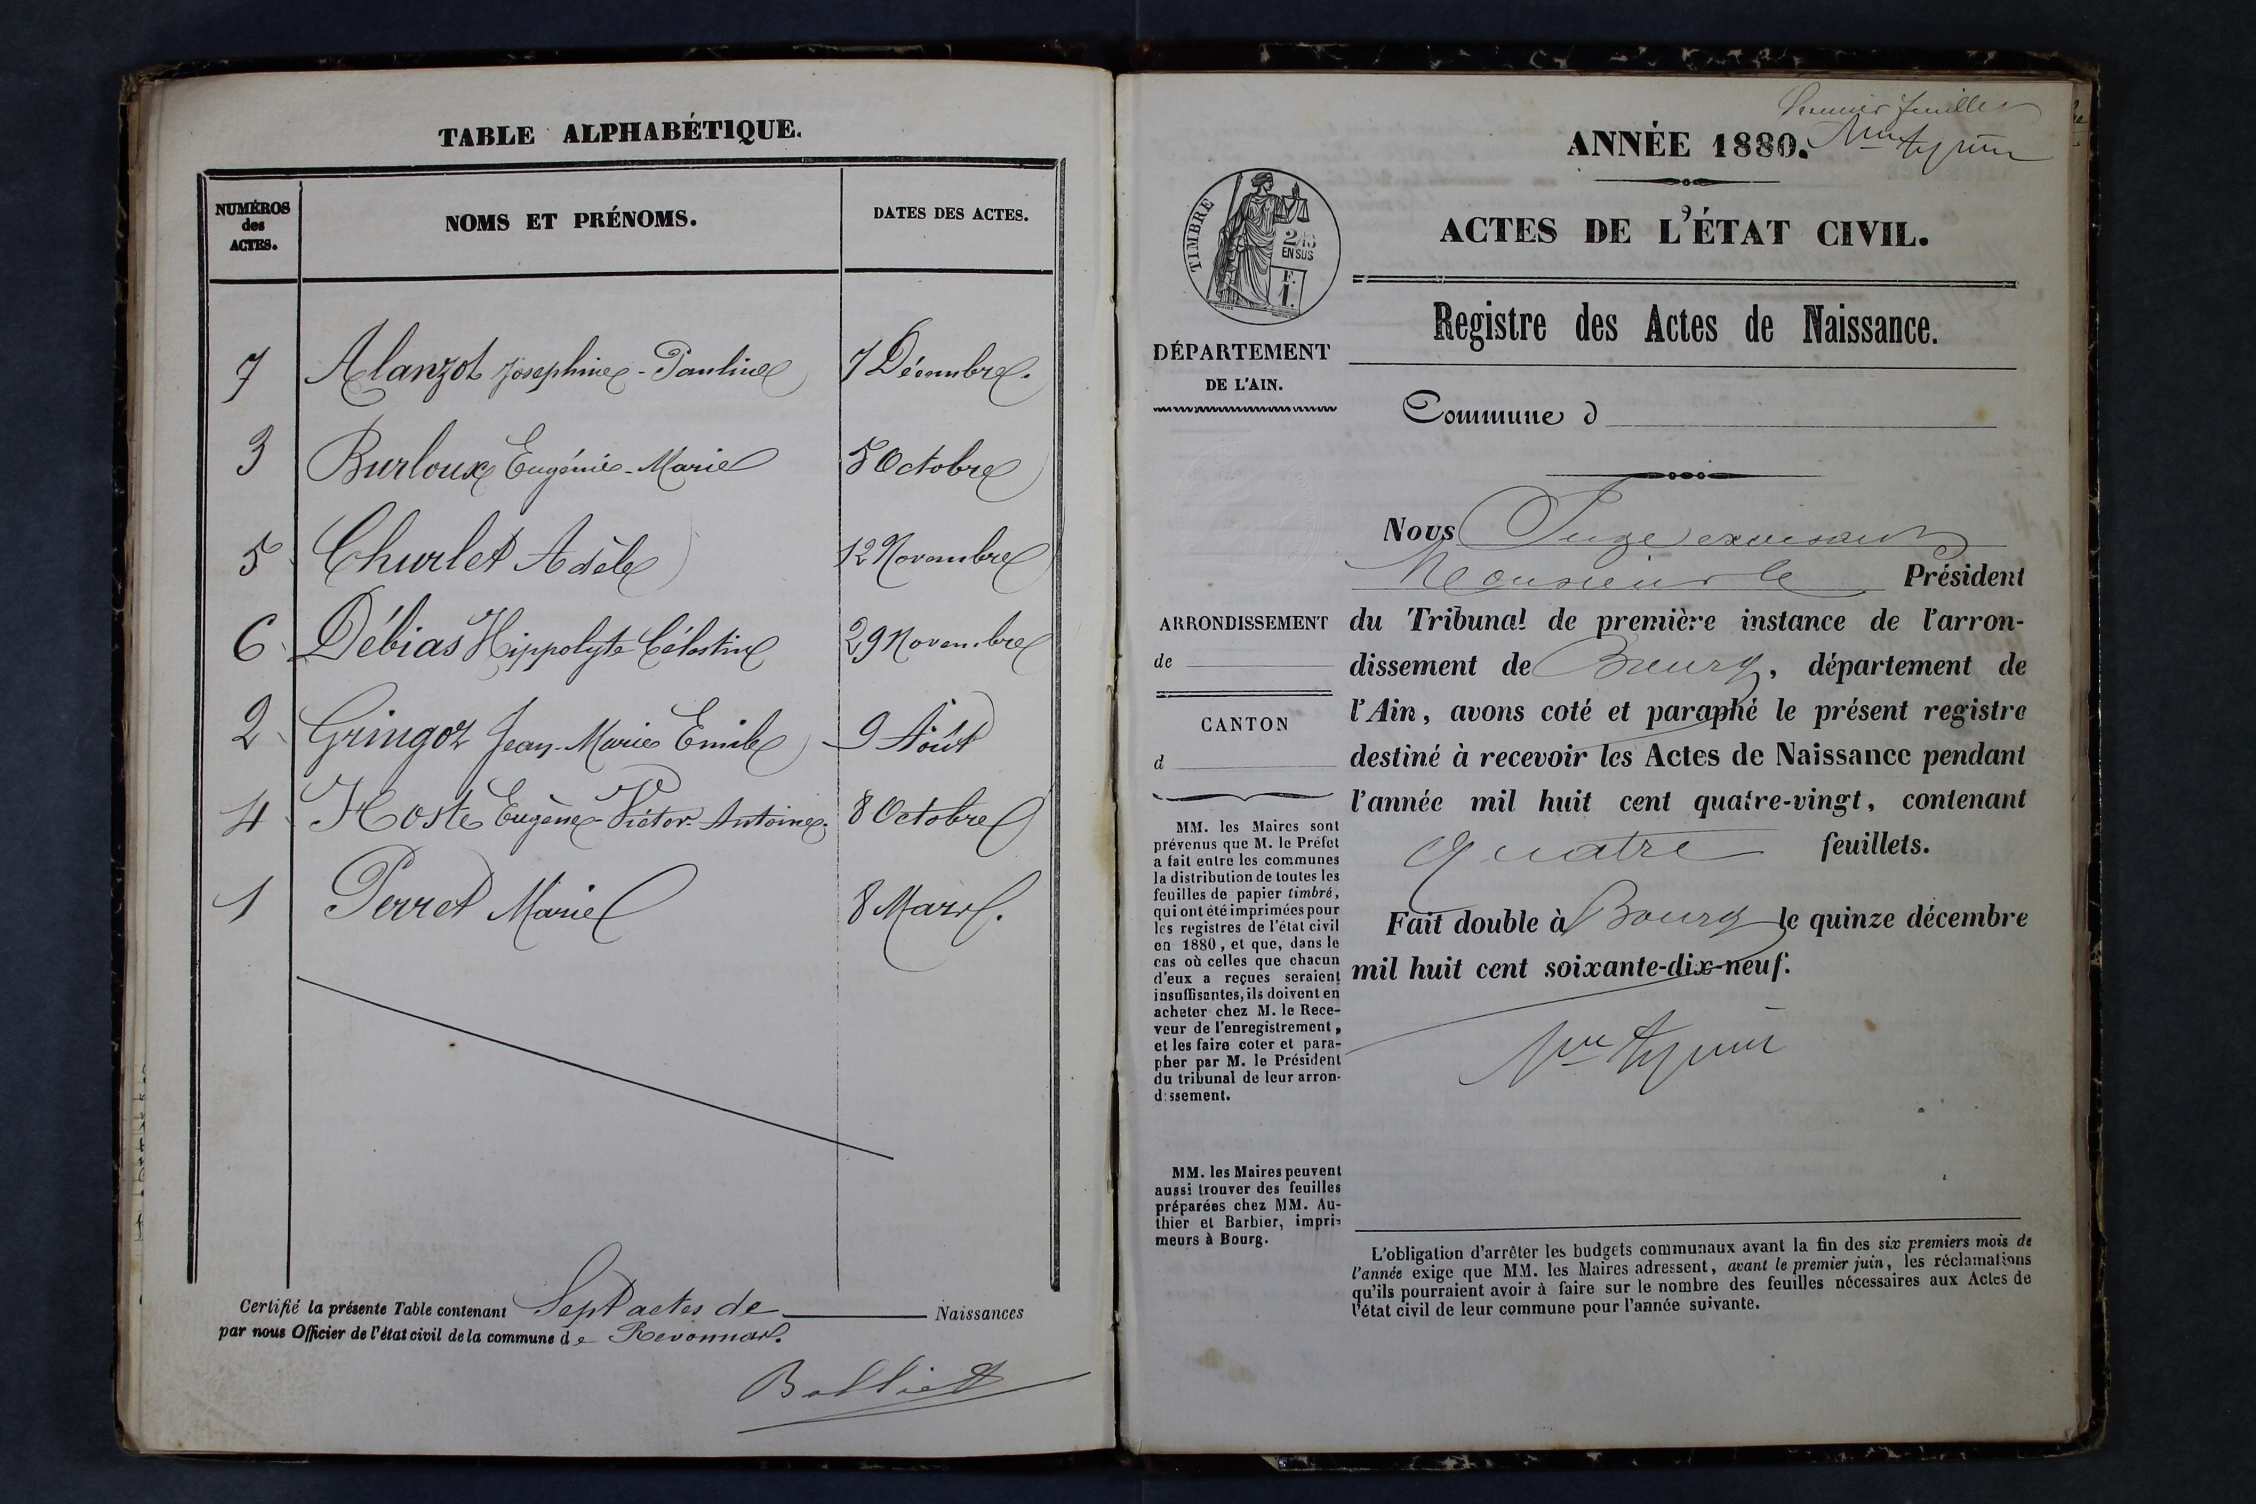 TABLE ALPHABÉTIQUE.
NUMÉROS
des
ACTES.
NOMS ET PRÉNOMS.
DATES DES ACTES.
7 Alanzot Joséphine-Pauline 7 Décembre.
3 Burloux Eugénie-Marie 5 Octobre
5 Churlet Adèle 12 Novembre
6 Débias Hippolyte Célestin 29 Novembre
2 Gringoz Jean-Marie Emile 9 Août
4 Hoste Eugène-Victor-Antoine 8 Octobre
1 Perret Marie 8 Mars.
Certifié la présente Table contenant Sept actes de Naissances
par nous Officier de l'état civil de la commune de Revonnas.
Balliet
Premier feuillet
ANNÉE 1880.
ACTES DE L'ÉTAT CIVIL.
TIMBRE
2/10
EN SUS
F.
1.
Registre des Actes de Naissance.
DÉPARTEMENT
DE L'AIN.
Commune d
Nous Juge exerçant
Monsieur le Président
du Tribunal de première instance de l'arron-
dissement de Bourg, département de
l'Ain, avons coté et paraphé le présent registre
destiné à recevoir les Actes de Naissance pendant
l'année mil huit cent quatre-vingt, contenant
quatre feuillets.
Fait double à Bourg le quinze décembre
mil huit cent soixante-dix-neuf.
ARRONDISSEMENT
de
CANTON
d
MM. les Maires sont
prévenus que M. le Préfet
a fait entre les communes
la distribution de toutes les
feuilles de papier timbré,
qui ont été imprimées pour
les registres de l'état civil
en 1880, et que, dans le
cas où celles que chacun
d'eux a reçues seraient
insuffisantes, ils doivent en
acheter chez M. le Rece-
veur de l'enregistrement,
et les faire coter et para-
pher par M. le Président
du tribunal de leur arron-
dissement.
MM. les Maires peuvent
aussi trouver des feuilles
préparées chez MM. Au-
thier et Barbier, impri-
meurs à Bourg.
L'obligation d'arrêter les budgets communaux avant la fin des six premiers mois de
l'année exige que MM. les Maires adressent, avant le premier juin, les réclamations
qu'ils pourraient avoir à faire sur le nombre des feuilles nécessaires aux Actes de
l'état civil de leur commune pour l'année suivante.